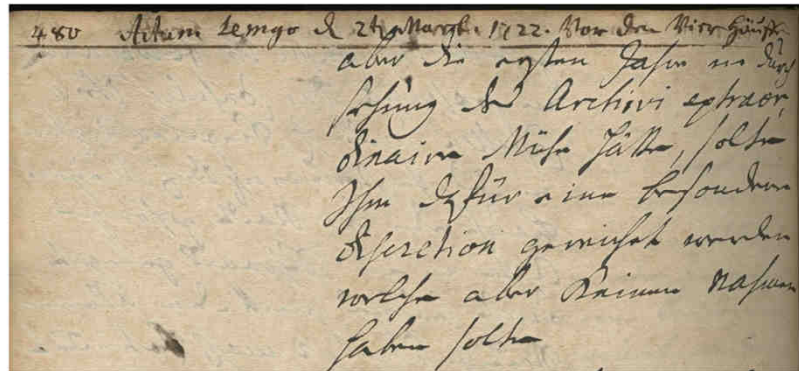 480 Actum Lemgo d 24 Martij. 1722. Vor den Vier Häuff
aber die ersten Jahre in durch
sehung des Archivi extraor,
dinaire Mühe hätte, solte
Ihm dafür eine besondere
discretion gereichet werden
welche aber keinen Nahmen
haben solte